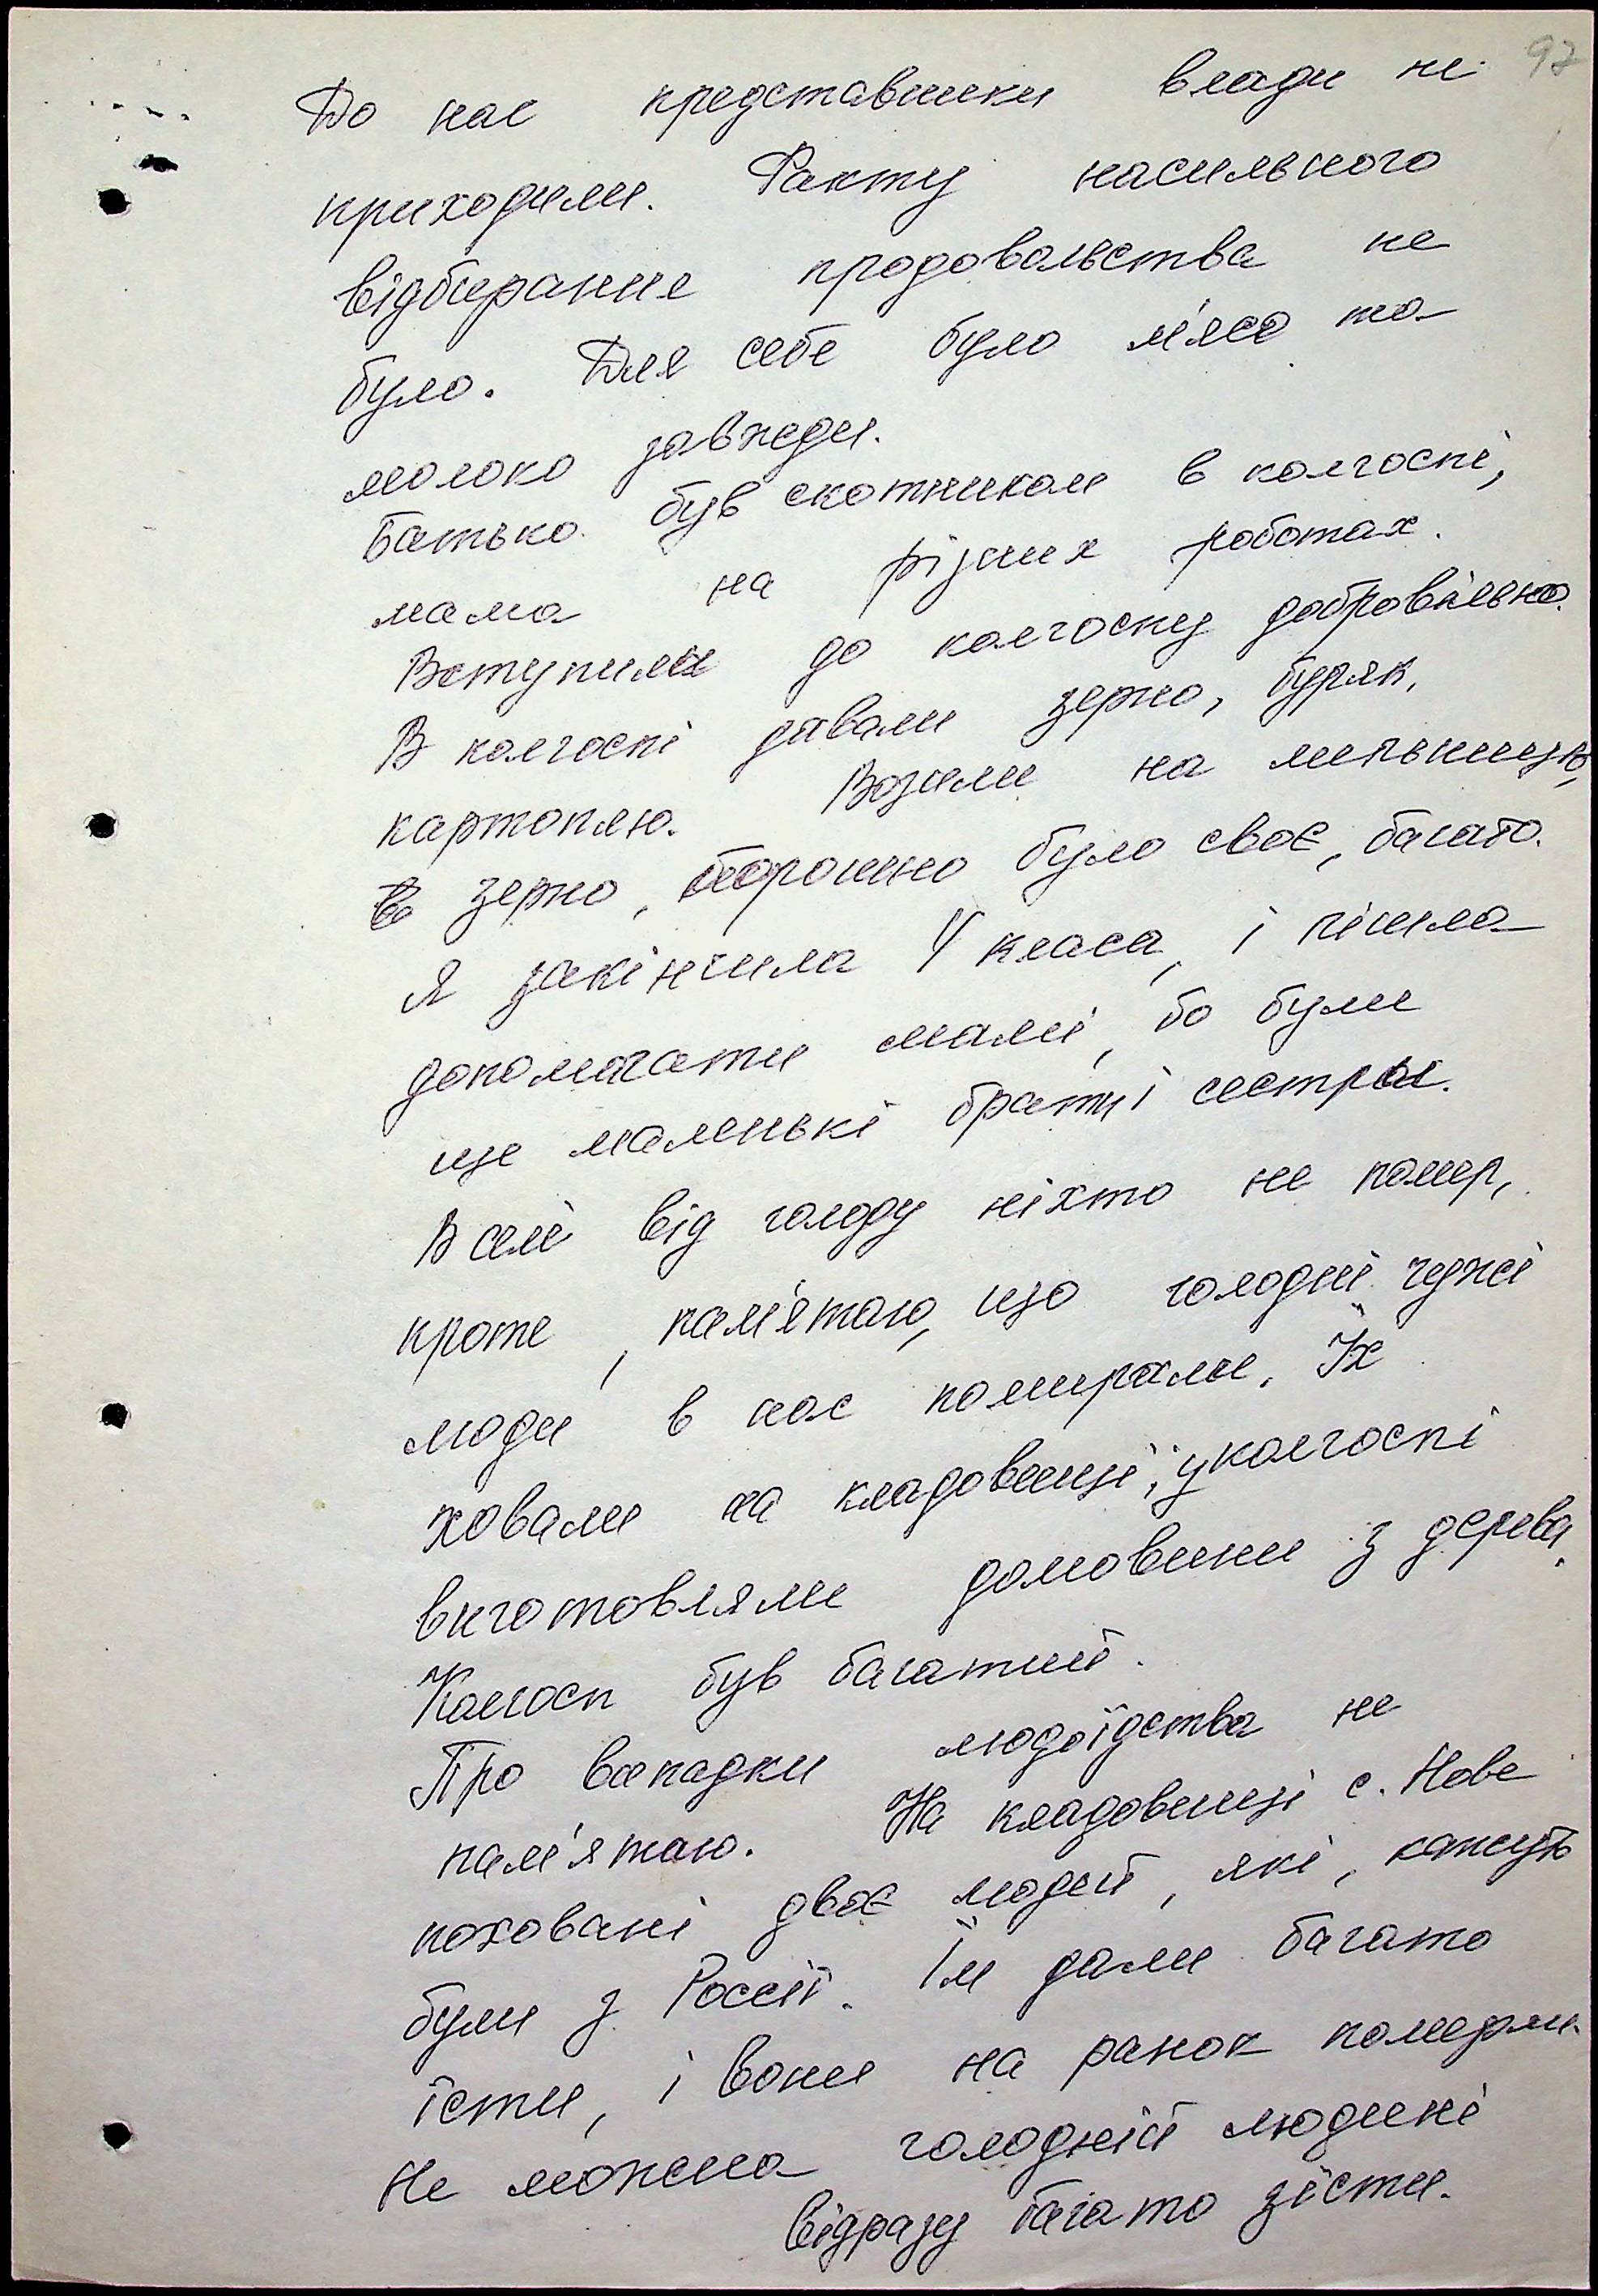 97
До нас представники влади не
приходили. Факту насильного
відбирання продовольства не
було. Для себе було м'ясо та
молоко завжди.
Батько був скотником в колгоспі,
мама на різних роботах.
Вступили до колгоспу добровільно.
В колгоспі давали зерно, буряк,
картоплю. Возили на мельницю,
зерно, борошно було своє, багато.
Я закінчила 4 класа, і пішла
допомагати мамі, бо були
ще маленькі брати і сестри.
В селі від голоду ніхто не помер,
проте, пам'ятаю, що голодні чужі
люди в нас помирали. Їх
ховали на кладовищі, у колгоспі
виготовляли домовини з дерева.
Колгосп був багатий.
Про випадки людоїдства не
пам'ятаю. На кладовищі с. Нове
поховані двоє людей, які, кажуть
були з Россії. Їм дали багато
їсти, і вони на ранок померли.
Не можна голодній людині
відразу багато з'їсти.